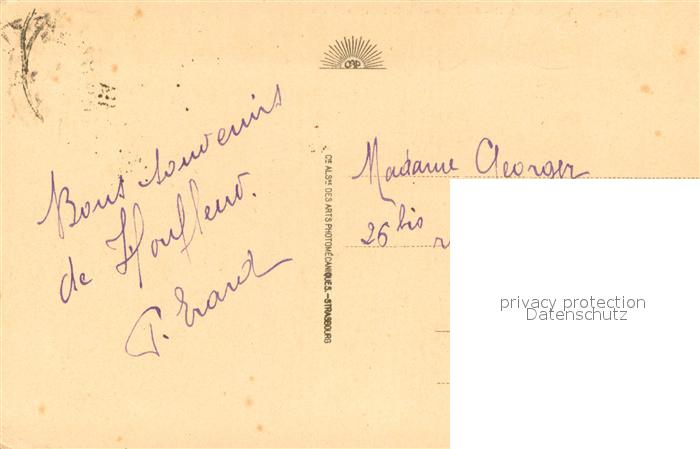 CAP
Bons souvenirs
de Honfleur.
P. Erard
Cie ALSne DES ARTS PHOTOMÉCANIQUES. – STRASBOURG
Madame Georger
26 bis
privacy protection
Datenschutz